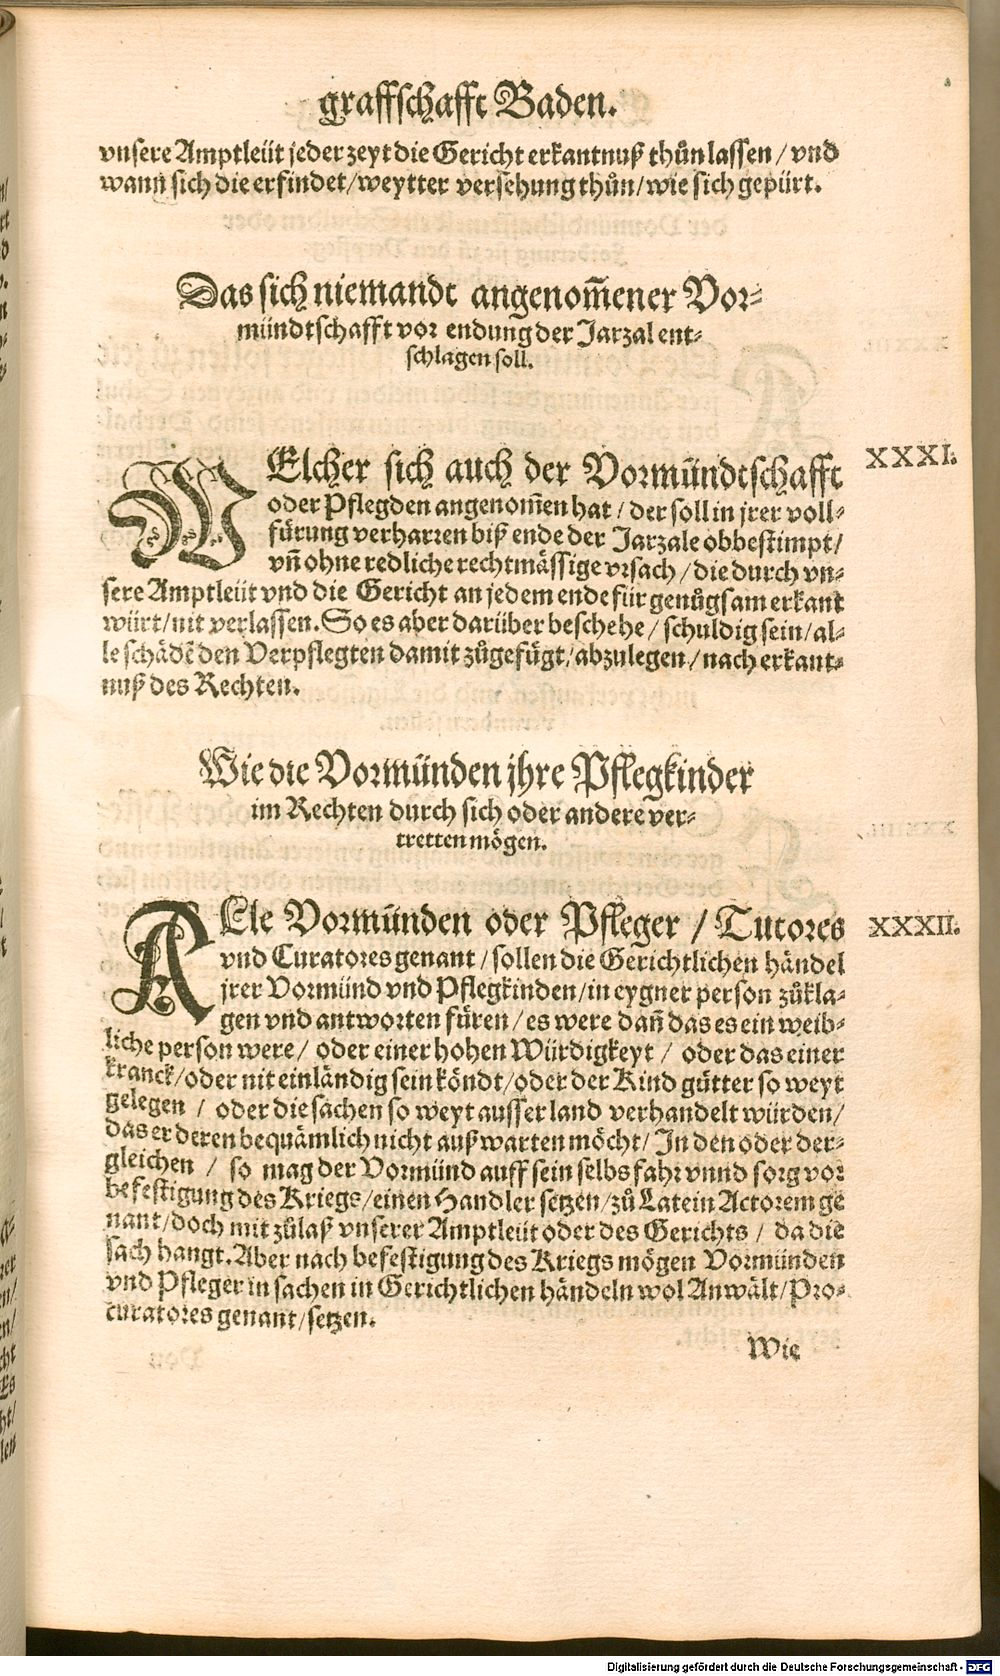 graffschafft Baden.
vnsere Amptleüt jeder zeyt die Gericht erkantnuß thůn lassen / vnd
wann sich die erfindet / weytter versehung thůn / wie sich gepürt.
Das sich niemandt angenom̄ener Vor⸗
mündtschafft vor endung der Jarzal ent⸗
schlagen soll.
XXXI.
WElcher sich auch der Vormündtschafft
oder Pflegden angenom̄en hat / der soll in jrer voll⸗
fürung verharren biß ende der Jarzale obbestimpt /
vn̄ ohne redliche rechtmässige vrsach / die durch vn⸗
sere Amptleüt vnd die Gericht an jedem ende für genůgsam erkant
würt / nit verlassen. So es aber darüber beschehe / schuldig sein / al⸗
le schädē den Verpflegten damit zůgefügt / abzulegen / nach erkant⸗
nuß des Rechten.
Wie die Vormünden jhre Pflegkinder
im Rechten durch sich oder andere ver⸗
tretten mögen.
XXXII.
ALle Vormünden oder Pfleger / Tutores
vnd Curatores genant / sollen die Gerichtlichen händel
jrer Vormünd vnd Pflegkinden / in eygner person zůkla⸗
gen vnd antworten füren / es were dan̄ das es ein weib⸗
liche person were / oder einer hohen Würdigkeyt / oder das einer
kranck / oder nit einländig sein köndt / oder der Kind gütter so weyt
gelegen / oder die sachen so weyt ausser land verhandelt würden /
das er deren bequämlich nicht außwarten möcht / In den oder der⸗
gleichen / so mag der Vormünd auff sein selbs fahr vnnd sorg vor
befestigung des Kriegs / einen Handler setzen / zů Latein Actorem ge
nant / doch mit zůlaß vnserer Amptleüt oder des Gerichts / da die
sach hangt. Aber nach befestigung des Kriegs mögen Vormünden
vnd Pfleger in sachen in Gerichtlichen händeln wol Anwält / Pro⸗
curatores genant / setzen.
Wie
Digitalisierung gefördert durch die Deutsche Forschungsgemeinschaft - DFG